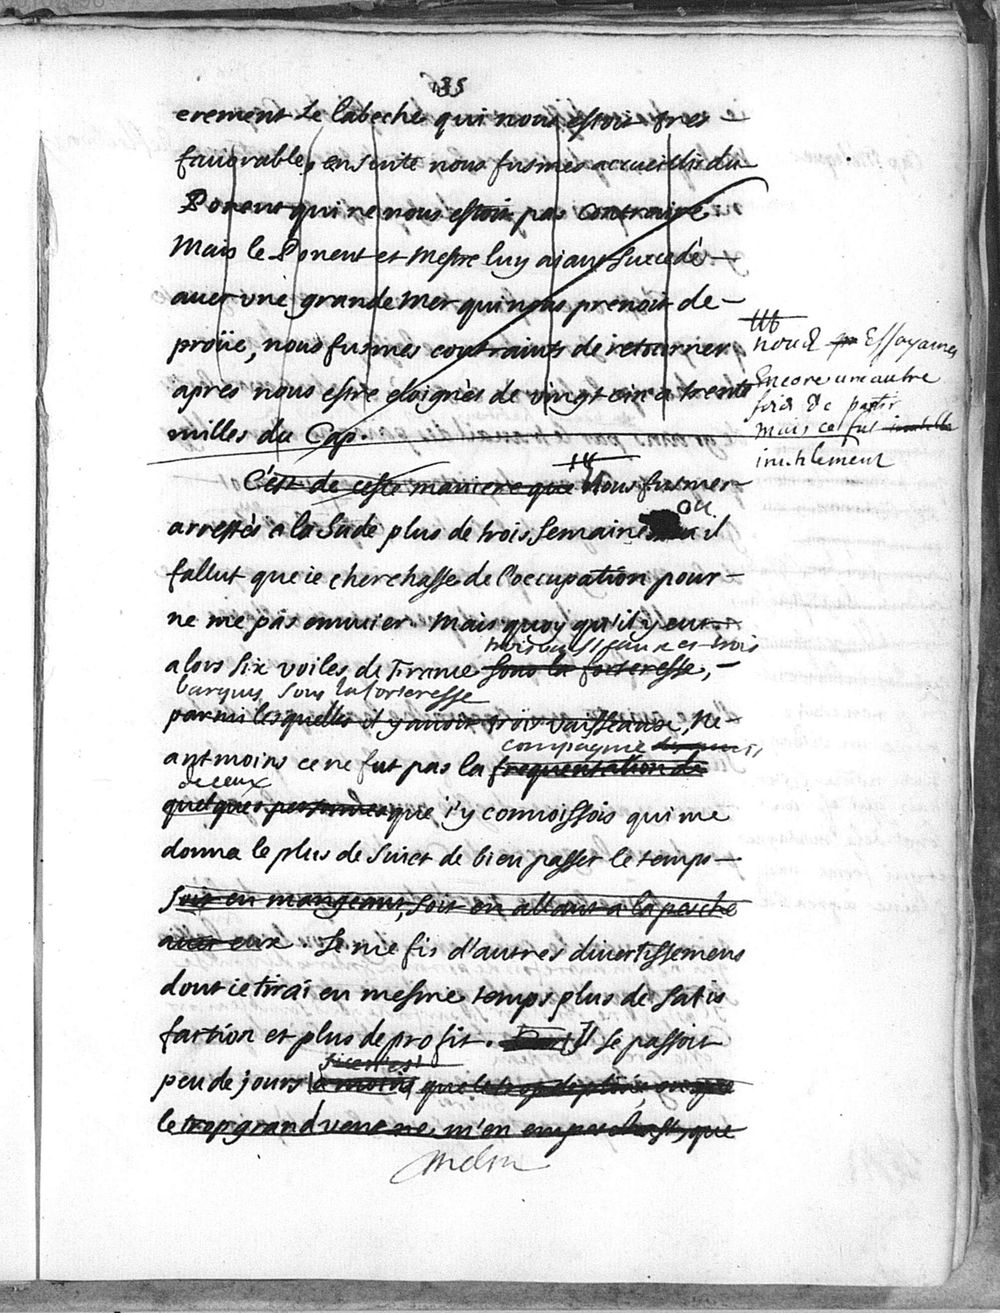 35
erement le labeche qui nous estoit fres
fauorable, en suite nous fusmes accueillis du
Ponent qui ne nous estoit pas contraire
Mais le Ponent et Mestre luy aiant succedé
auec une grande mer qui nous prenoit de-
proüe, nous fusmes contraints de retourner
apres nous estre eloignés de vingt cinq a trente
milles du Cap.
nous Essayames
Encore une autre
fois de partir
mais cel fut inutille
inutilement
C'est de ceste maniere que Nous fusmes
ou
arrestés a la Sude plus de trois semaines il
fallut que ie cherchasse de l'occupation pour
ne me pas ennuier. Mais quoy qu'il y eut
trois vaisseaux et trois
alors six voiles de France sous la forteresse,
barques sous la forteresse
parmi lesquelles il y auoit trois vaisseaux, Ne-
compagnie
antmoins ce ne fut pas la frequentation de
de ceux
quelques personnes que i'y connoissois qui me
donna le plus de suiet de bien passer le temps
soit en mangeant, soit en allant a la pesche
auec eux. Je me fis d'autres diuertissemens
dont ie tirai en mesme temps plus de satis
faction et plus de profit. Il se passoit
peu de jours a moins que le trop de pluie, ou
le trop grand vent ne m'en empeschast, que